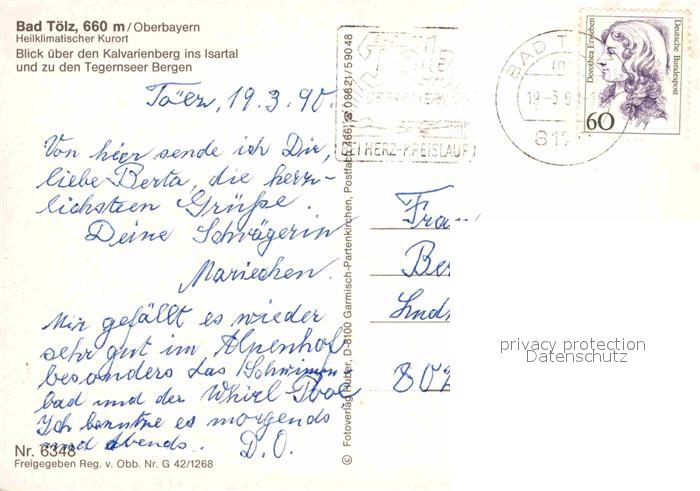 Bad Tölz, 660 m/Oberbayern
Heilklimatischer Kurort
Blick über den Kalvarienberg ins Isartal
und zu den Tegernseer Bergen
Tölz, 19.3.90.
Von hier sende ich Dir,
liebe Berta, die herz-
lichsteen Grüße.
Deine Schwägerin
Mariechen.
Mir gefällt es wieder
sehr gut im Alpenhof
besonders das Schwimm-
bad und der Whirl Pool
Ich benutze es morgends
und Abends. D.O.
Nr. 6348
Freigegeben Reg. v. Obb. Nr. G 42/1268
© Fotoverlag Huber, D-8100 Garmisch-Partenkirchen, Postfach 466, ☎ 08821/59048
BEI HERZ-KREISLAUF
BAD T
19-3.9
812
Dorothea Erxleben
Deutsche Bundespost
60
Frau
Ber
Lud
802
privacy protection
Datenschutz